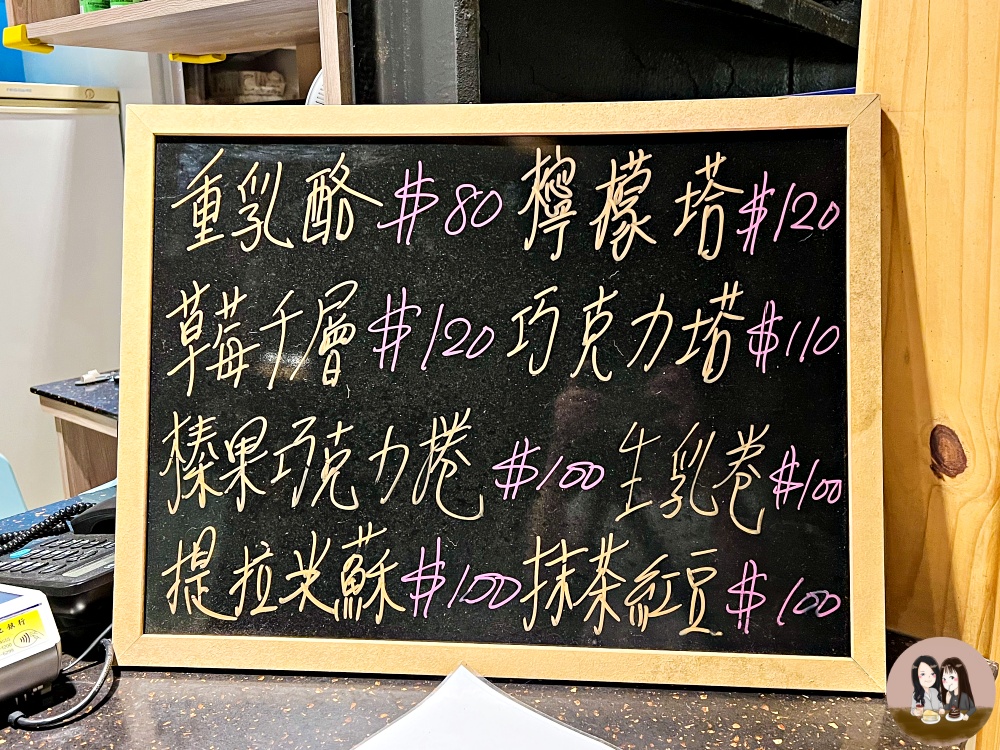 重乳酪 $80 檸檬塔 $120
草莓千層 $120 巧克力塔 $110
榛果巧克力捲 $100 生乳卷 $100
提拉米蘇 $100 抹茶紅豆 $100